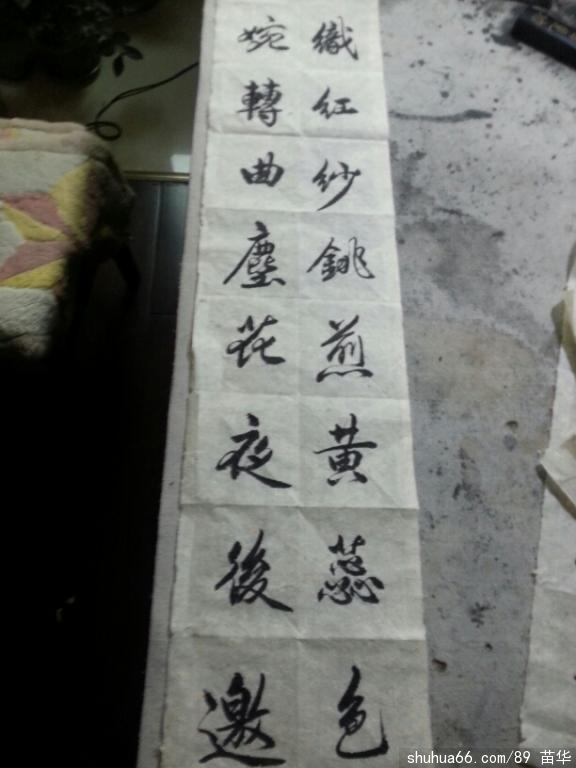 織紅紗銚煎黄蕊色
婉轉曲塵花夜後邀
shuhua66.com/89 苗华